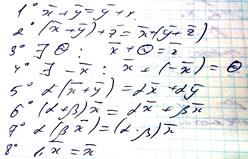 1° x̄ + ȳ = ȳ + x
2° (x̄ + ȳ) + z̄ = x̄ + (ȳ + z̄)
3° ∃ Θ : x̄ + Θ = x̄
4° ∃ -x̄ : x̄ + (-x̄) = Θ
5° α(x̄ + ȳ) = αx̄ + αȳ
6° (α + β)x̄ = αx̄ + βx̄
7° α(βx̄) = (α·β)x̄
8° 1·x̄ = x̄